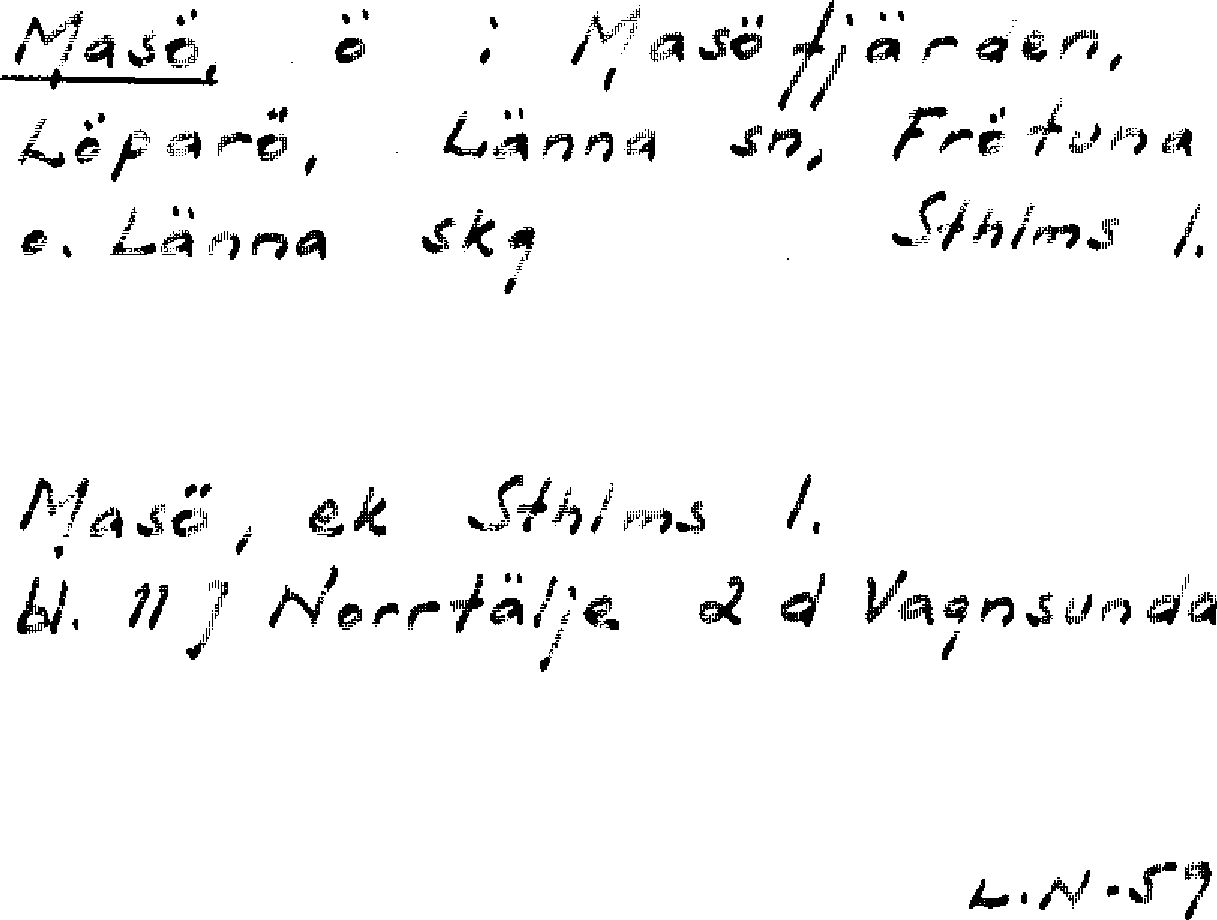 Masö, ö i Masöfjärden,
Löparö, Länna sn, Frötuna
o. Länna skg Sthlms l.
Masö, ek Sthlms l.
bl. 11 J Norrtälje 2 d Vagnsunda
L.N.59